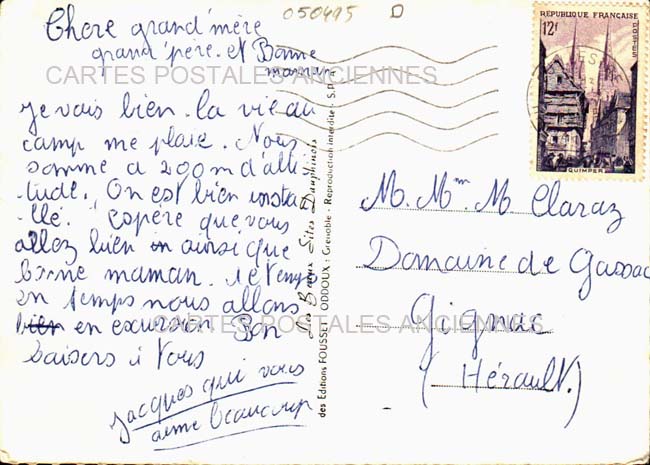 050495 D
Chere grand'mère
grand'père. et Bonne
maman
CARTES POSTALES ANCIENNES
je vais bien. la vie au
camp me plaie. Nous
somme a 200m d'alti
tude. On est bien insta
-llé. j'espère que vous
allez bien ainsi que
bonne maman. de temps
en temps nous allons
bien en excursion Bon
CARTES POSTALES ANCIENNES
baisers à Vous
jacques qui vous
aime beaucoup
Les Beaux Sites Dauphinois
des Editions FOUSSET ODDOUX - Grenoble - Reproduction interdite - S.P.
RÉPUBLIQUE FRANÇAISE
12f
POSTES
QUIMPER
M. Mme M Claraz
Domaine de Gassac
Gignac
(Hérault.)